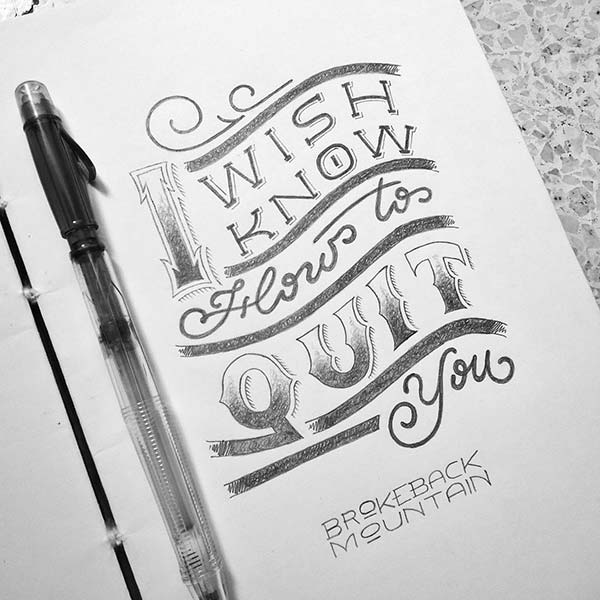 I WISH
KNOW
How to
QUIT
You
BROKEBACK
MOUNTAIN